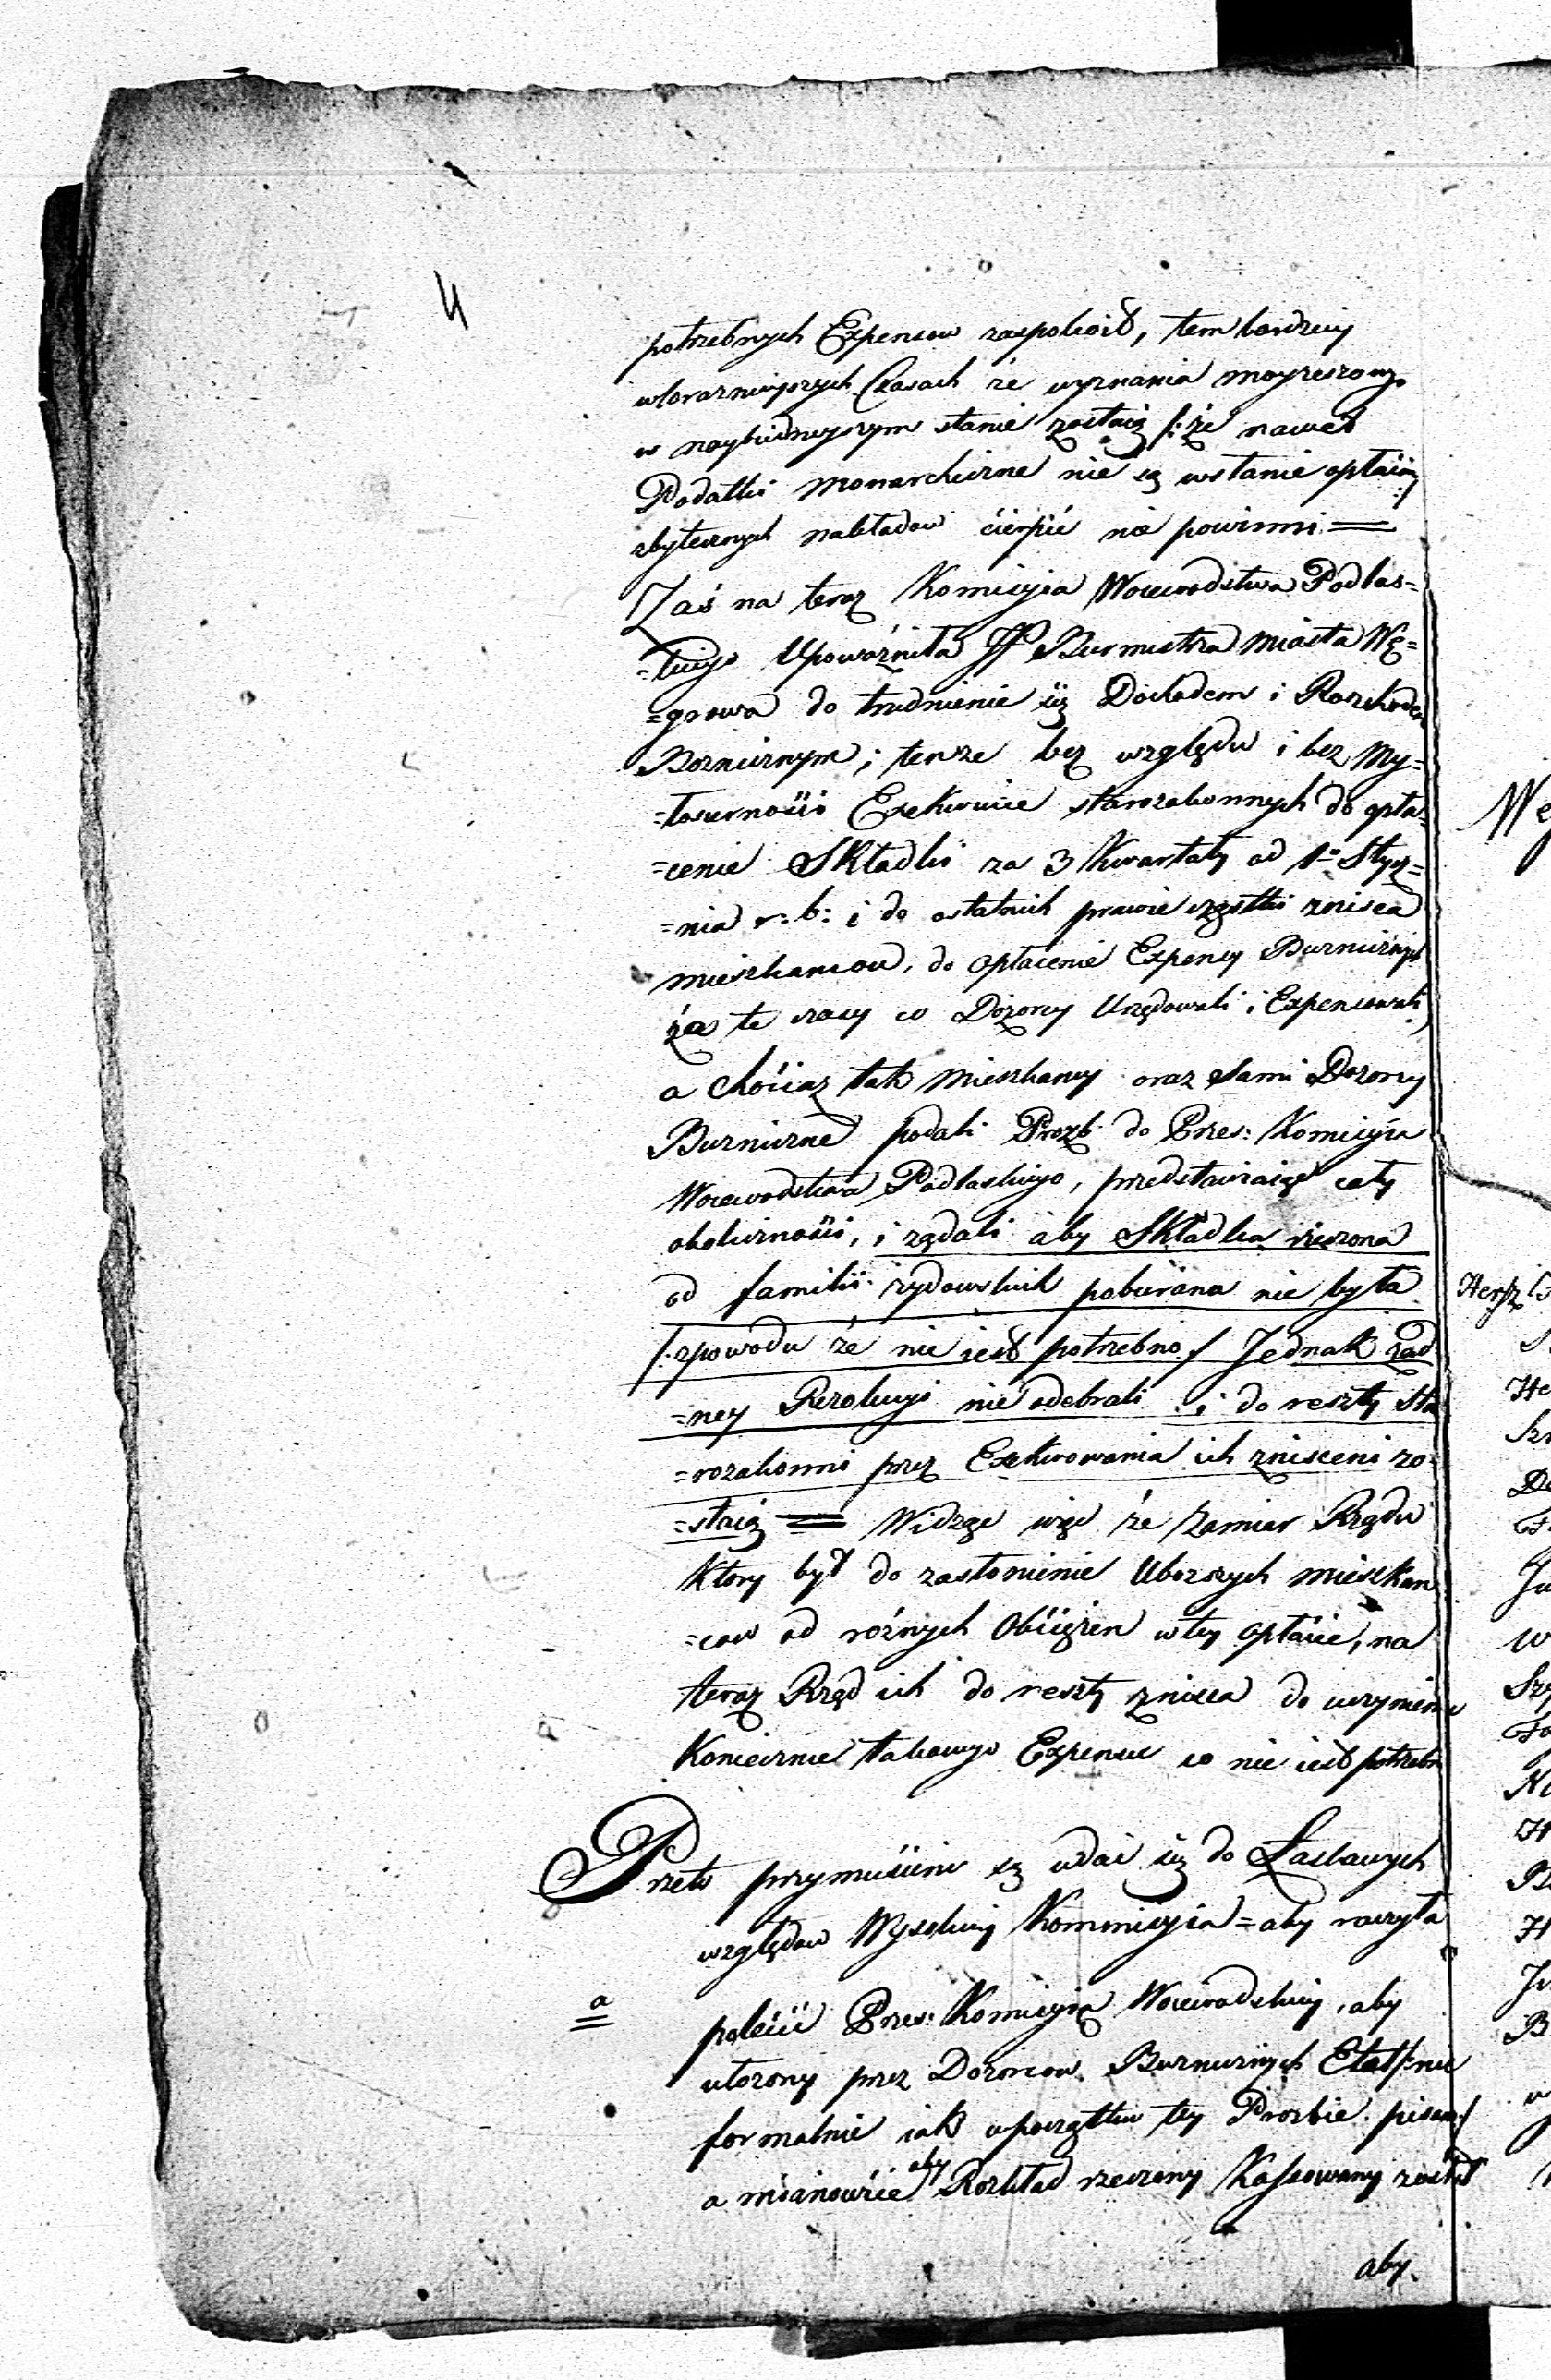 4
potrzebnych Expensow zaspokoić, tem bardziey
w terazniejszych Czasach że wyznania moyżeszowego
w nayбiednieyszym stanie zostaią /: że nawet
Podatki Monarchiczne nie są wstanie opłacić :/
zbytecznych nakładow cierpić nie powinni =
Zaś na teraz Komicyia Woiewodstwa Podlas=
=kiego Upoważniła JP Burmistrza Miasta Wę=
=growa do trudnienie się Dochodem i Rozchodem
Boznicznym; tenże bez względu i bez My=
=łosierności Exekwuie starozakonnych do opła=
=cenie Składki za 3 Kwartały od 1º Stycz=
=nia r: b: i do ostatnich prawie cząstki znisca
mieszkancow, do opłacenie Expensy Burnicznych
za te czasy co Dozorcy Urzędowali i Expensowali
a Chociaz tak Mieszkancy oraz Sami Dozorcy
Burniczne podali Prozb do Przes: Komicyia
Woiewodstwa Podlaskiego, przedstawiaiąc cały
okoliczności, i rządali aby Składka rzeczona
od familii żydowskich pobierana nie była
/: zpowodu że nie iest potrzebno :/ Jednak żad=
=ney Rezolucyi nie odebrali i do reszty Sta=
=rozakonni przez Exekwowania ich zniszceni zo=
=staią = Widząc więc że zamiar Rządu
Ktory był do zasłonienie Uboższych mieszkan=
=cow od rożnych Obciężen w tey opłacie, na
teraz Rząd ich do reszty znisca do uczynienie
Koniecznie takowego Expensu co nie iest potrzebn
Przeto przymuszeni są udać się do Łaskawych
względow Wysokiey Kommicyia = aby raczyła
a
polecić Przes: Komicyią Woiewodskiey, aby
ułożony przez Dozorcow Burnicznych Etat /: nie
formalnie iak w początku tey Prozbie pisano :/
a mianowicie aby Rozkład rzeczony Kassowany został
aby